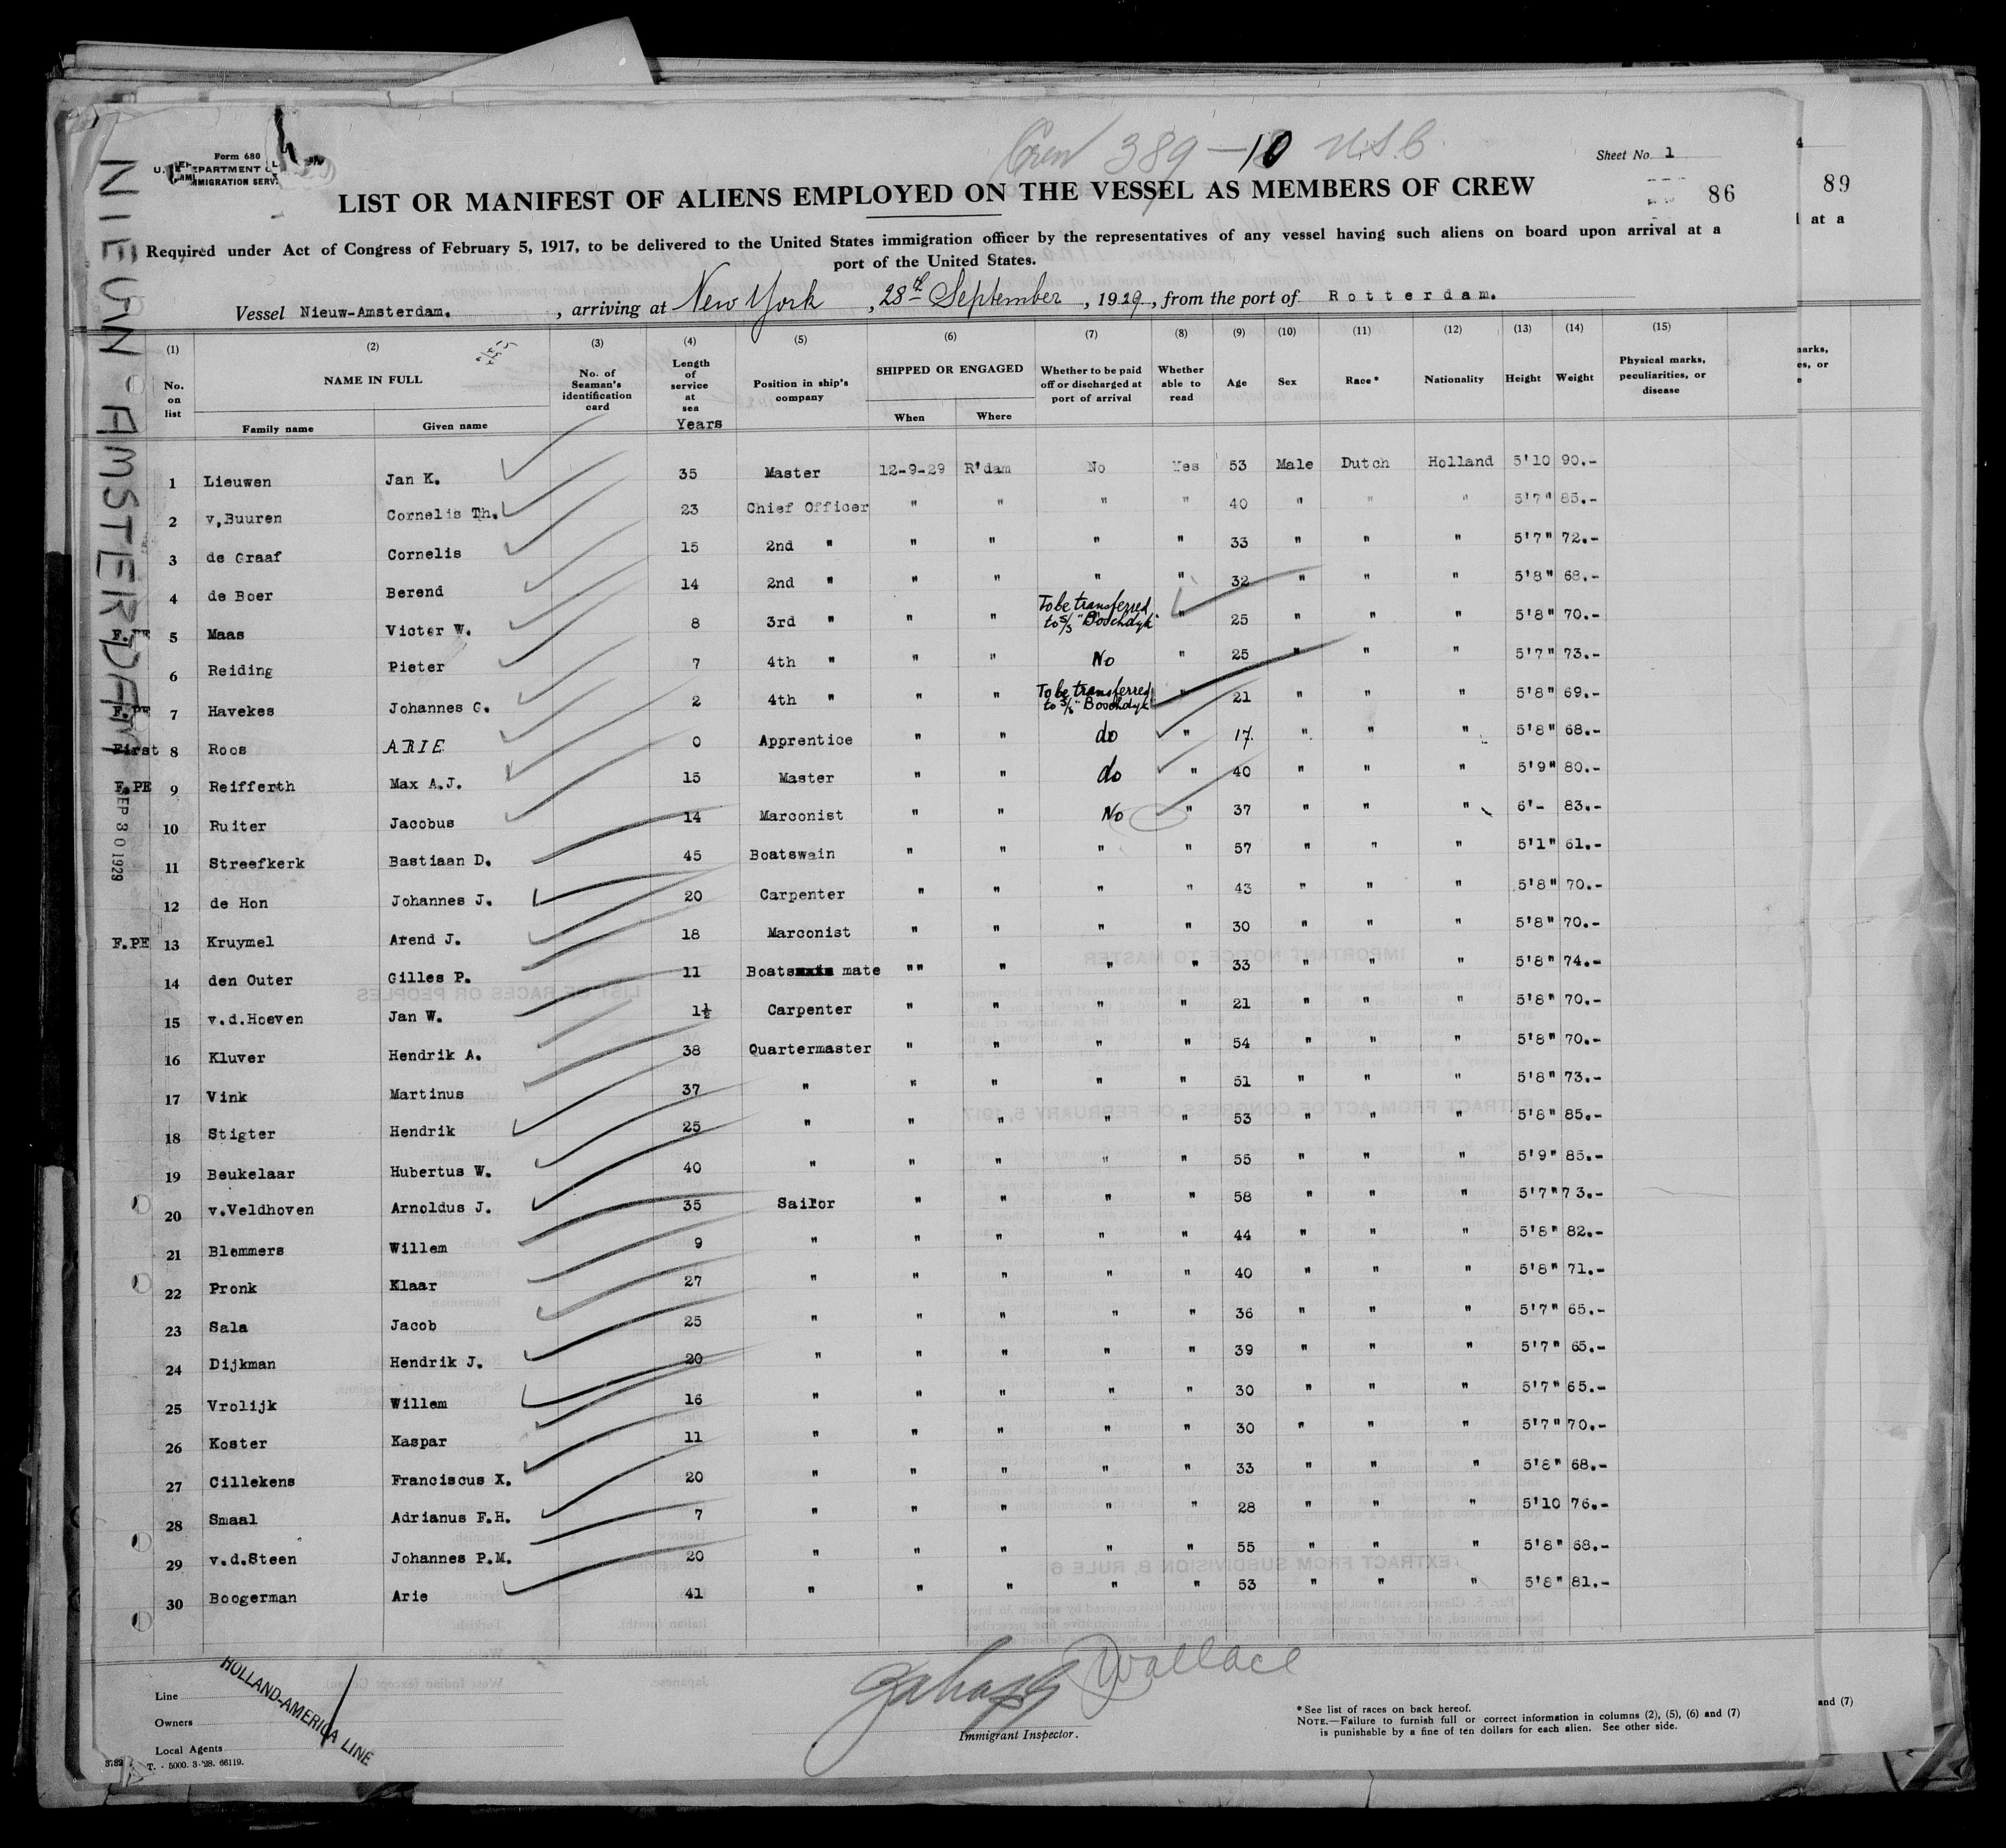 Crew 389 - 10 U.S.C.
Form 680
Sheet No. 1
4
86
89
LIST OR MANIFEST OF ALIENS EMPLOYED ON THE VESSEL AS MEMBERS OF CREW
Required under Act of Congress of February 5, 1917, to be delivered to the United States immigration officer by the representatives of any vessel having such aliens on board upon arrival at a
port of the United States.
Vessel Nieuw-Amsterdam. , arriving at New York , 28th September , 1929, from the port of Rotterdam.
NIEUW AMSTERDAM
SEP 30 1929
(1) (2) (3) (4) (5) (6) (7) (8) (9) (10) (11) (12) (13) (14) (15)
No. on list NAME IN FULL Family name Given name No. of Seaman's identification card Length of service at sea Years Position in ship's company SHIPPED OR ENGAGED When Where Whether to be paid off or discharged at port of arrival Whether able to read Age Sex Race* Nationality Height Weight Physical marks, peculiarities, or disease
1 Lieuwen Jan K. 35 Master 12-9-29 R'dam No Yes 53 Male Dutch Holland 5'10 90.-
2 v,Buuren Cornelis Th. 23 Chief Officer " " " " 40 " " " 5'7" 85.-
3 de Graaf Cornelis 15 2nd " " " " " 33 " " " 5'7" 72.-
4 de Boer Berend 14 2nd " " " " " 32 " " " 5'8" 68.-
5 Maas Victor W. 8 3rd " " " To be transferred to s/s "Boschdyk" " 25 " " " 5'8" 70.-
6 Reiding Pieter 7 4th " " " No " 25 " " " 5'7" 73.-
F.PE 7 Havekes Johannes G. 2 4th " " " To be transferred to s/s "Boschdyk" " 21 " " " 5'8" 69.-
First 8 Roos ARIE 0 Apprentice " " do " 17 " " " 5'8" 68.-
F.PE 9 Reifferth Max A.J. 15 Master " " do " 40 " " " 5'9" 80.-
10 Ruiter Jacobus 14 Marconist " " No " 37 " " " 6'- 83.-
11 Streefkerk Bastiaan D. 45 Boatswain " " " " 57 " " " 5'1" 61.-
12 de Hon Johannes J. 20 Carpenter " " " " 43 " " " 5'8" 70.-
F.PE 13 Kruymel Arend J. 18 Marconist " " " " 30 " " " 5'8" 70.-
14 den Outer Gilles P. 11 Boats mate "" " " " 33 " " " 5'8" 74.-
15 v.d.Hoeven Jan W. 1½ Carpenter " " " " 21 " " " 5'8" 70.-
16 Kluver Hendrik A. 38 Quartermaster " " " " 54 " " " 5'8" 70.-
17 Vink Martinus 37 " " " " " 51 " " " 5'8" 73.-
18 Stigter Hendrik 25 " " " " " 53 " " " 5'8" 85.-
19 Beukelaar Hubertus W. 40 " " " " " 55 " " " 5'9" 85.-
20 v.Veldhoven Arnoldus J. 35 Sailor " " " " 58 " " " 5'7" 73.-
21 Blommers Willem 9 " " " " " 44 " " " 5'8" 82.-
22 Pronk Klaar 27 " " " " " 40 " " " 5'8" 71.-
23 Sala Jacob 25 " " " " " 36 " " " 5'7" 65.-
24 Dijkman Hendrik J. 20 " " " " " 39 " " " 5'7" 65.-
25 Vrolijk Willem 16 " " " " " 30 " " " 5'7" 65.-
26 Koster Kaspar 11 " " " " " 30 " " " 5'7" 70.-
27 Cillekens Franciscus X. 20 " " " " " 33 " " " 5'8" 68.-
28 Smaal Adrianus F.H. 7 " " " " " 28 " " " 5'10 76.-
29 v.d.Steen Johannes P.M. 20 " " " " " 55 " " " 5'8" 68.-
30 Boogerman Arie 41 " " " " " 53 " " " 5'8" 81.-
Line
Owners
Local Agents
HOLLAND-AMERICA LINE
T. - 5000. 3-'28. 66119.
Wallace
Immigrant Inspector.
*See list of races on back hereof.
NOTE.—Failure to furnish full or correct information in columns (2), (5), (6) and (7)
is punishable by a fine of ten dollars for each alien. See other side.
and (7)